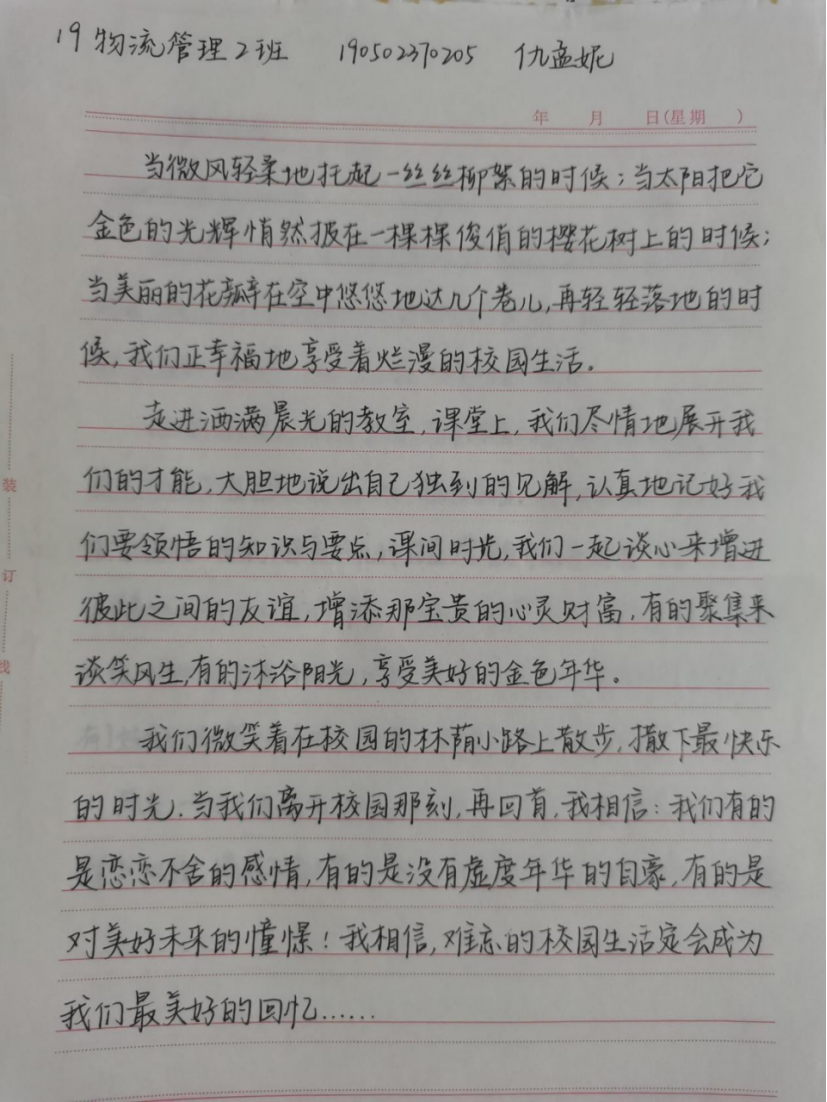 19物流管理2班 190502370205 仇孟妮
年 月 日(星期 )
当微风轻柔地托起一丝丝柳絮的时候；当太阳把它
金色的光辉悄然披在一棵棵俊俏的樱花树上的时候；
当美丽的花瓣在空中悠悠地达几个卷儿,再轻轻落地的时
候,我们正幸福地享受着烂漫的校园生活。
走进洒满晨光的教室,课堂上,我们尽情地展开我
们的才能,大胆地说出自己独到的见解,认真地记好我
们要领悟的知识与要点,课间时光,我们一起谈心来增进
彼此之间的友谊,增添那宝贵的心灵财富,有的聚集来
谈笑风生,有的沐浴阳光,享受美好的金色年华。
我们微笑着在校园的林荫小路上散步,撒下最快乐
的时光.当我们离开校园那刻,再回首,我相信:我们有的
是恋恋不舍的感情,有的是没有虚度年华的自豪,有的是
对美好未来的憧憬!我相信,难忘的校园生活定会成为
我们最美好的回忆……
装
订
线